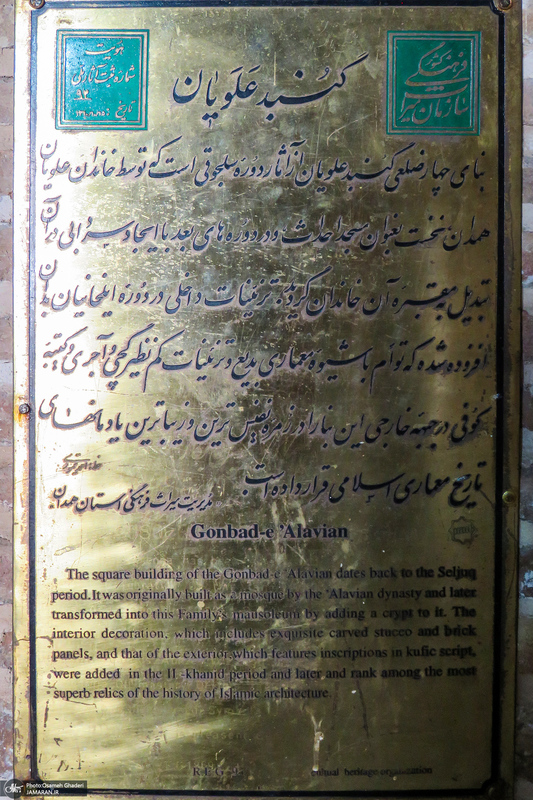 هویت
شماره ثبت آثار ملی
۹۴
تاریخ
سازمان میراث فرهنگی کشور
گنبد علویان
بنای چهار ضلعی گنبد علویان از آثار دوره سلجوقی است که توسط خاندان علویان
همدان نخست بعنوان مسجد احداث و در دوره های بعد با ایجاد سردابی در آن
تبدیل به مقبره آن خاندان گردیده تزئینات داخلی در دوره ایلخانیان بدان
افزوده شده که توأم با شیوه معماری بدیع و تزئینات کم نظیر گچی و آجری و کتیبه
کوفی در جبهه خارجی این بنا را در زمره نفیس ترین و زیباترین یادمانهای
تاریخ معماری اسلامی قرار داده است
مدیریت میراث فرهنگی استان همدان
Gonbad-e 'Alavian
The square building of the Gonbad-e 'Alavian dates back to the Seljuq
period. It was originally built as a mosque by the 'Alavian dynasty and later
transformed into this Family's mausoleum by adding a crypt to it. The
interior decoration, which includes exquisite carved stucco and brick
panels, and that of the exterior, which features inscriptions in kufic script,
were added in the Il-khanid period and later and rank among the most
superb relics of the history of Islamic architecture.
cultural heritage organization
Photo:Osameh Ghaderi
JAMARAN.IR